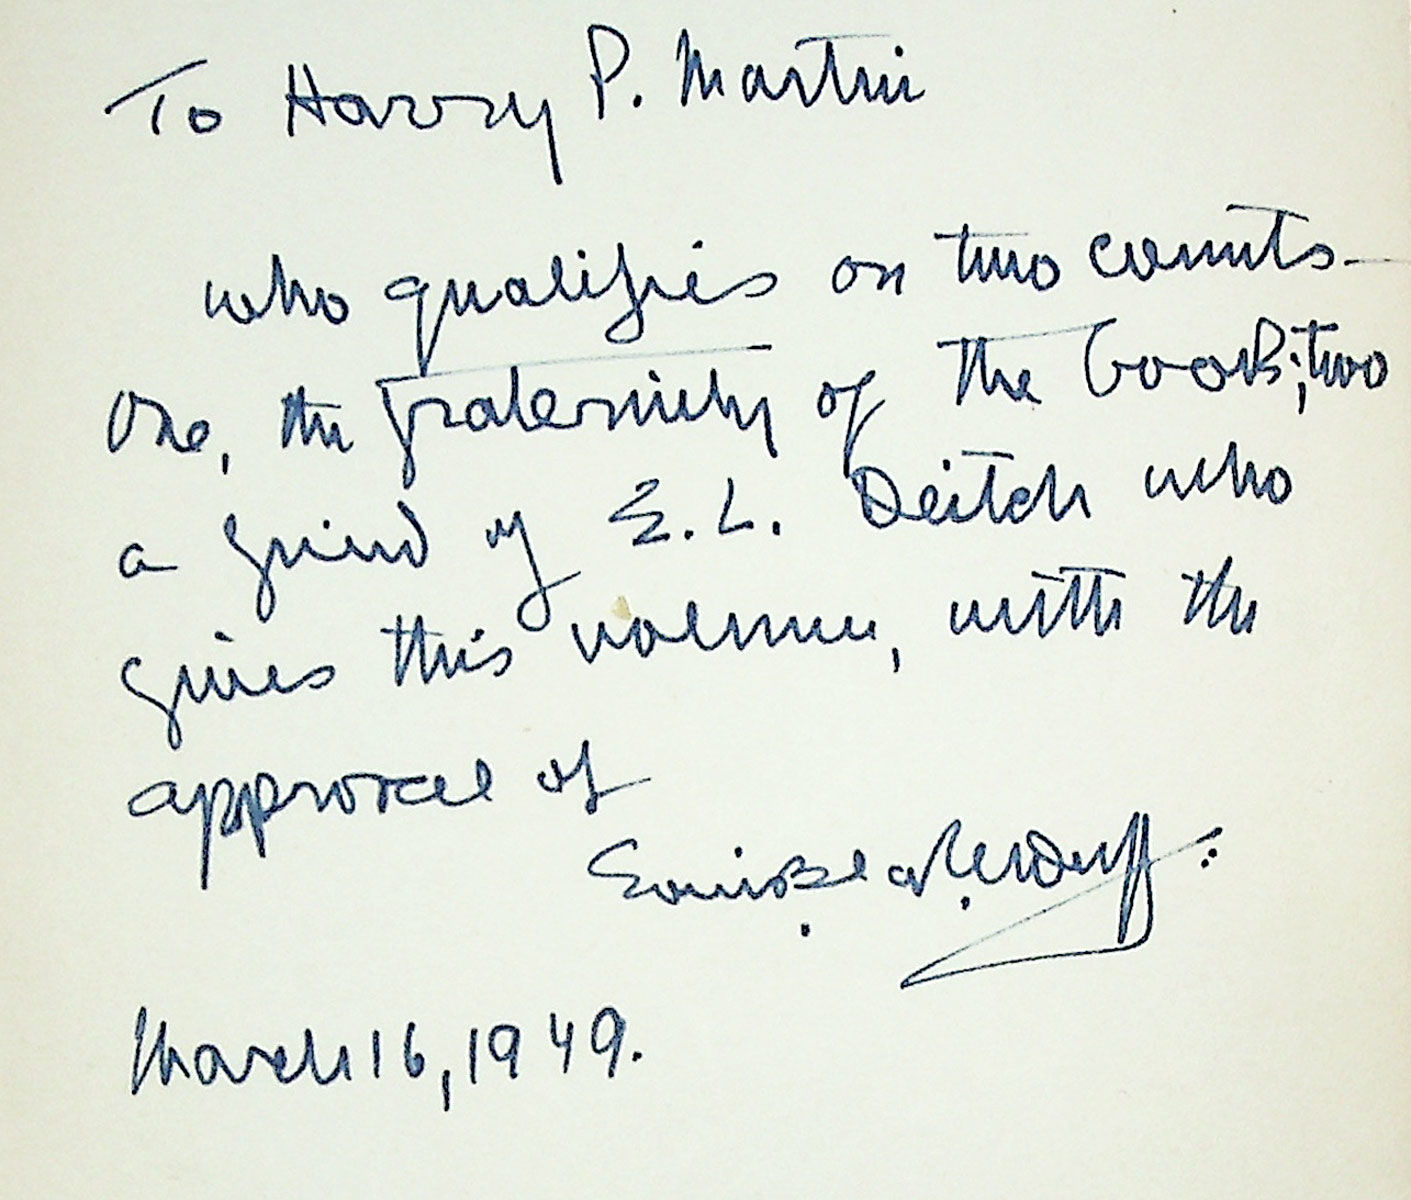 To Harry P. Martin
who qualifies on two counts—
One, the fraternity of the book; two
a friend of E. L. Deitch who
gives this volume, with the
approval of
March 16, 1949.